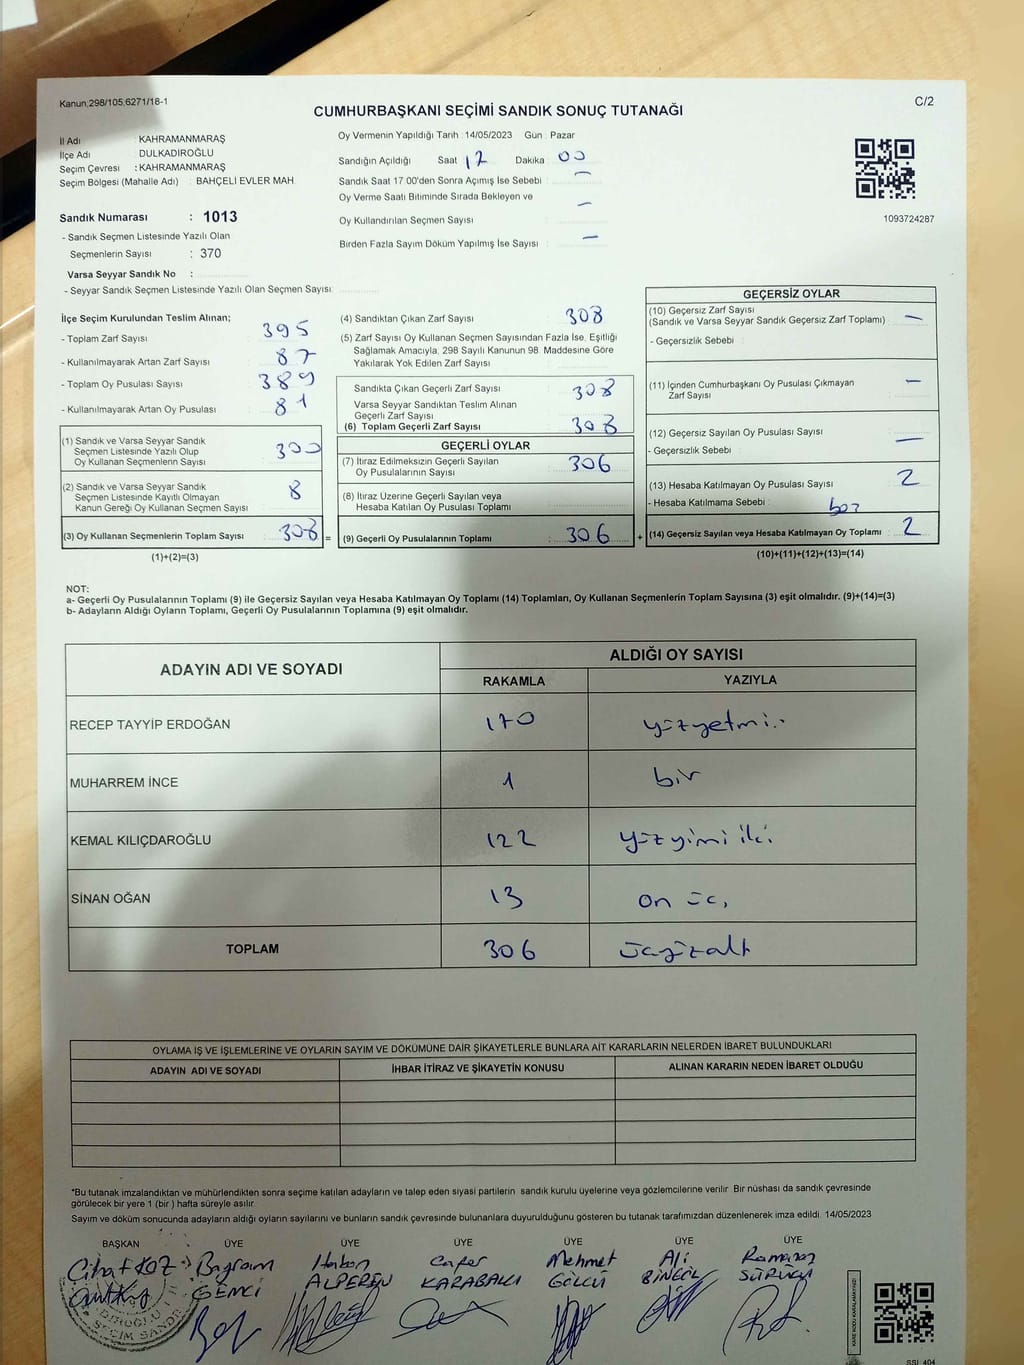 Kanun;298/105;6271/18-1
C/2
CUMHURBAŞKANI SEÇİMİ SANDIK SONUÇ TUTANAĞI
İl Adı : KAHRAMANMARAŞ
İlçe Adı : DULKADİROĞLU
Seçim Çevresi : KAHRAMANMARAŞ
Seçim Bölgesi (Mahalle Adı) : BAHÇELİ EVLER MAH.
Sandık Numarası : 1013
- Sandık Seçmen Listesinde Yazılı Olan
Seçmenlerin Sayısı : 370
Varsa Seyyar Sandık No :
- Seyyar Sandık Seçmen Listesinde Yazılı Olan Seçmen Sayısı:
Oy Vermenin Yapıldığı Tarih : 14/05/2023 Gün : Pazar
Sandığın Açıldığı Saat 17 Dakika 00
Sandık Saat 17.00'den Sonra Açımış İse Sebebi : -
Oy Verme Saati Bitiminde Sırada Bekleyen ve
Oy Kullandırılan Seçmen Sayısı : -
Birden Fazla Sayım Döküm Yapılmış İse Sayısı : -
1093724287
İlçe Seçim Kurulundan Teslim Alınan;
- Toplam Zarf Sayısı : 395
- Kullanılmayarak Artan Zarf Sayısı : 87
- Toplam Oy Pusulası Sayısı : 389
- Kullanılmayarak Artan Oy Pusulası : 81
(1) Sandık ve Varsa Seyyar Sandık
Seçmen Listesinde Yazılı Olup
Oy Kullanan Seçmenlerin Sayısı : 300
(2) Sandık ve Varsa Seyyar Sandık
Seçmen Listesinde Kayıtlı Olmayan
Kanun Gereği Oy Kullanan Seçmen Sayısı : 8
(3) Oy Kullanan Seçmenlerin Toplam Sayısı : 308 =
(1)+(2)=(3)
(4) Sandıktan Çıkan Zarf Sayısı : 308
(5) Zarf Sayısı Oy Kullanan Seçmen Sayısından Fazla İse, Eşitliği
Sağlamak Amacıyla, 298 Sayılı Kanunun 98. Maddesine Göre
Yakılarak Yok Edilen Zarf Sayısı :
Sandıkta Çıkan Geçerli Zarf Sayısı : 308
Varsa Seyyar Sandıktan Teslim Alınan
Geçerli Zarf Sayısı :
(6) Toplam Geçerli Zarf Sayısı : 308
GEÇERLİ OYLAR
(7) İtiraz Edilmeksizin Geçerli Sayılan
Oy Pusulalarının Sayısı : 306
(8) İtiraz Üzerine Geçerli Sayılan veya
Hesaba Katılan Oy Pusulası Toplamı :
(9) Geçerli Oy Pusulalarının Toplamı : 306 +
GEÇERSİZ OYLAR
(10) Geçersiz Zarf Sayısı
(Sandık ve Varsa Seyyar Sandık Geçersiz Zarf Toplamı) : -
- Geçersizlik Sebebi :
(11) İçinden Cumhurbaşkanı Oy Pusulası Çıkmayan
Zarf Sayısı : -
(12) Geçersiz Sayılan Oy Pusulası Sayısı : -
- Geçersizlik Sebebi :
(13) Hesaba Katılmayan Oy Pusulası Sayısı : 2
- Hesaba Katılmama Sebebi : boz
(14) Geçersiz Sayılan veya Hesaba Katılmayan Oy Toplamı : 2
(10)+(11)+(12)+(13)=(14)
NOT:
a- Geçerli Oy Pusulalarının Toplamı (9) ile Geçersiz Sayılan veya Hesaba Katılmayan Oy Toplamı (14) Toplamları, Oy Kullanan Seçmenlerin Toplam Sayısına (3) eşit olmalıdır. (9)+(14)=(3)
b- Adayların Aldığı Oyların Toplamı, Geçerli Oy Pusulalarının Toplamına (9) eşit olmalıdır.
ADAYIN ADI VE SOYADI ALDIĞI OY SAYISI
RAKAMLA YAZIYLA
RECEP TAYYİP ERDOĞAN 170 yüzyetmiş
MUHARREM İNCE 1 bir
KEMAL KILIÇDAROĞLU 122 yüzyimi iki
SİNAN OĞAN 13 on üç
TOPLAM 306 üçyüzaltı
OYLAMA İŞ VE İŞLEMLERİNE VE OYLARIN SAYIM VE DÖKÜMÜNE DAİR ŞİKAYETLERLE BUNLARA AİT KARARLARIN NELERDEN İBARET BULUNDUKLARI
ADAYIN ADI VE SOYADI İHBAR İTİRAZ VE ŞİKAYETİN KONUSU ALINAN KARARIN NEDEN İBARET OLDUĞU
*Bu tutanak imzalandıktan ve mühürlendikten sonra seçime katılan adayların ve talep eden siyasi partilerin sandık kurulu üyelerine veya gözlemcilerine verilir. Bir nüshası da sandık çevresinde
görülecek bir yere 1 (bir ) hafta süreyle asılır.
Sayım ve döküm sonucunda adayların aldığı oyların sayılarını ve bunların sandık çevresinde bulunanlara duyurulduğunu gösteren bu tutanak tarafımızdan düzenlenerek imza edildi. 14/05/2023
BAŞKAN ÜYE ÜYE ÜYE ÜYE ÜYE ÜYE
Cihat KOZ Bayram Hakan Cafer Mehmet Ali Ramazan
GEMCİ ALPEREN KARABALLI GÜLCÜ BİNGÖL SÜRÜCÜ
SSI 404